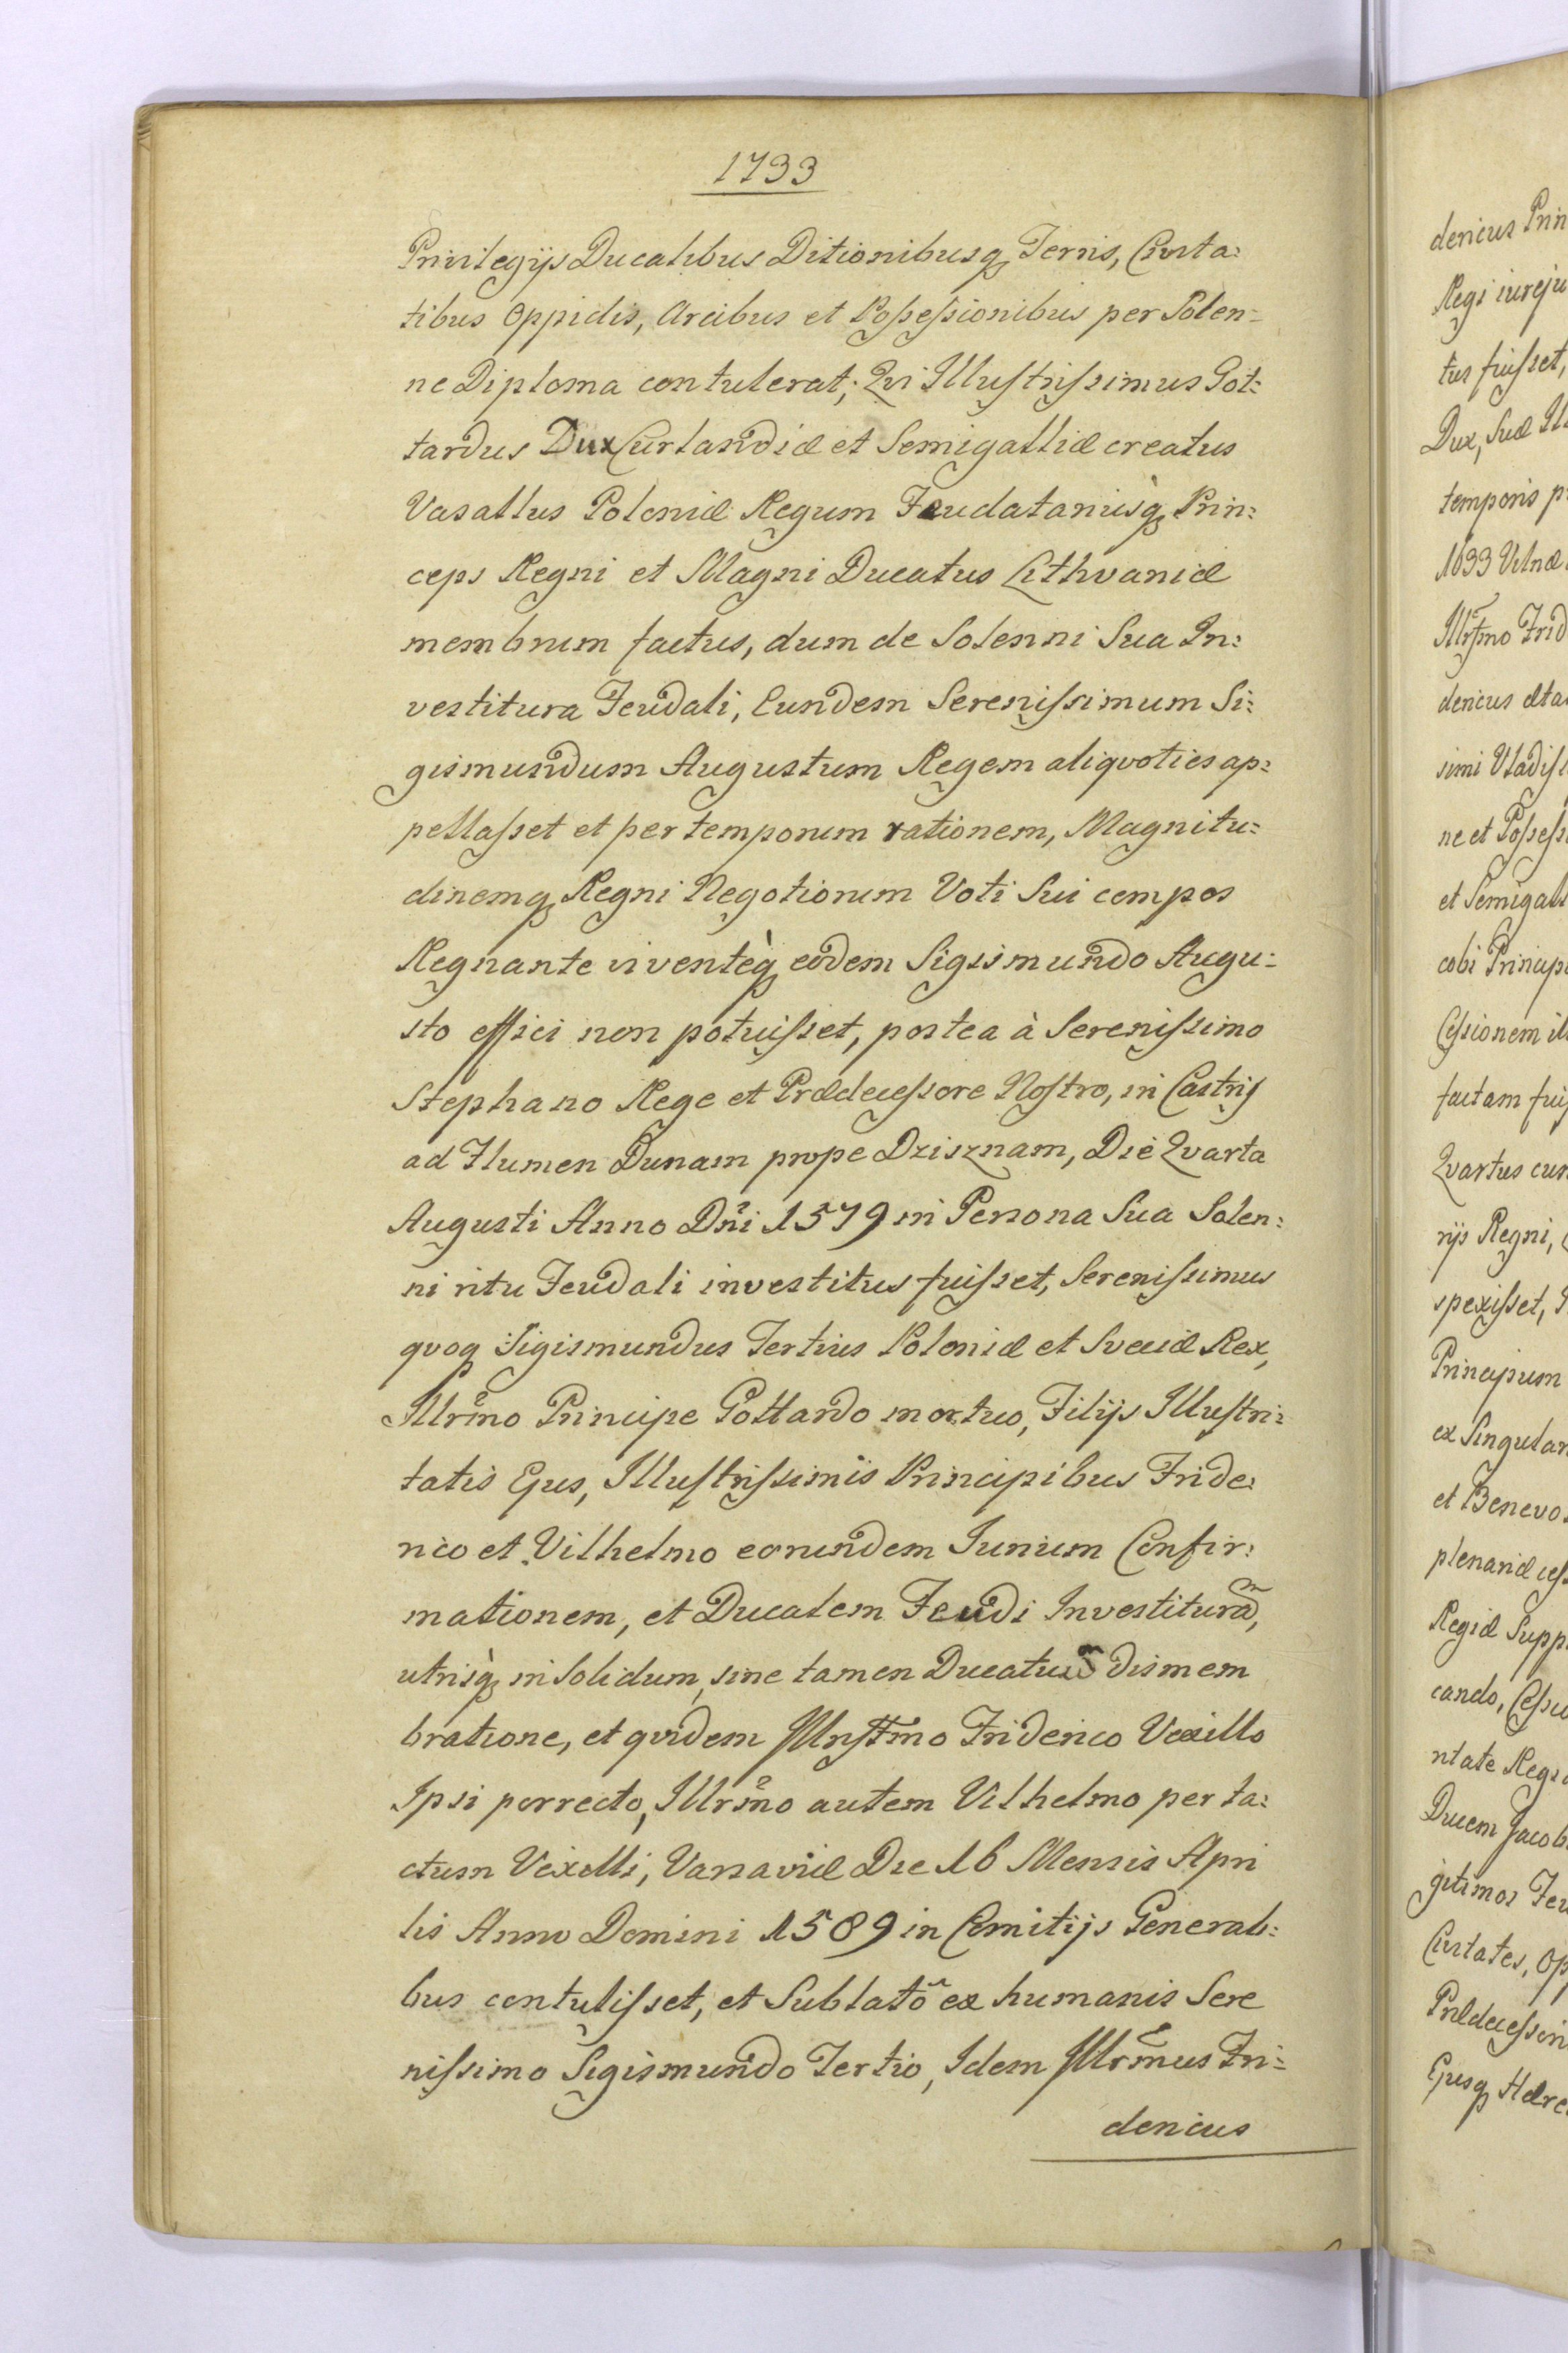 1733
Privilegijs Ducalibus Ditionibusq Terris, Civita:
tibus Oppidis, Arcibus et Possessionibus per Solen:
ne Diploma contulerat; Qvi Illustrissimus Got:
tardus Dux Curlandiæ et Semigalliæ creatus
Vasallus Poloniæ Regum Feudatariusq Prin:
ceps Regni et Magni Ducatus Lithvaniæ
membrum factus, dum de Solenni Sua In:
vestitura Feudali, Eundem Serenissimum Si:
gismundum Augustum Regem aliqvoties ap:
pellasset et per temporum rationem, Magnitu:
dinemq Regni Negotiorum Voti Sui compos
Regnante viventèq eodem Sigismundo Augu:
sto effici non potuisset, postea à Serenissimo
Stephano Rege et Prædecessore Nostro, in Castris
ad Flumen Dunam prope Dzisznam, Die Qvarta
Augusti Anno Dñi 1579 in Persona Sua Solen:
ni ritu Feudali investitus fuisset, Serenissimus
qvoq Sigismundus Tertius Poloniæ et Sveciæ Rex,
Illrm̃o Principe Gottardo mortuo, Filijs Illustri:
tatis Ejus, Illustrissimis Principibus Fride:
rico et Vilhelmo eorundem Iurium Confir:
mationem, et Ducalem Feudi Investituram,
utrisq in Solidum, sine tamen Ducatuum dismem
bratione, et qvidem Illust̃mo Friderico Vexillo
Ipsi porrecto, Illrm̃o autem Vilhelmo per ta:
ctum Vexilli, Varsaviæ Die 16 Mensis Apri
lis Anno Domini 1589 in Comitijs Generali:
bus contulisset, et Sublatõ ex humanis Sere
nissimo Sigismundo Tertio, Idem Illrm̃us Fri:
dericus
dericus Prin
Regi iureju
tus fuisset,
Dux, Suæ
temporis p
1633 Vilnæ
Illrst̃mo Frid
dericus æta
simi Vladisl
ne et Possess
et Semigall
cobi Princip
Cessionem il
factam fuis
Qvartus cum
rijs Regni,
spexisset,
Principum
ex Singular
et Benevo
plenariæ cess
Regiæ Supp
cando, Cessu
ritate Regi
Ducem Jacob
gitimos Feu
Civitates, Op
Prædecessor
Ejusq Hære